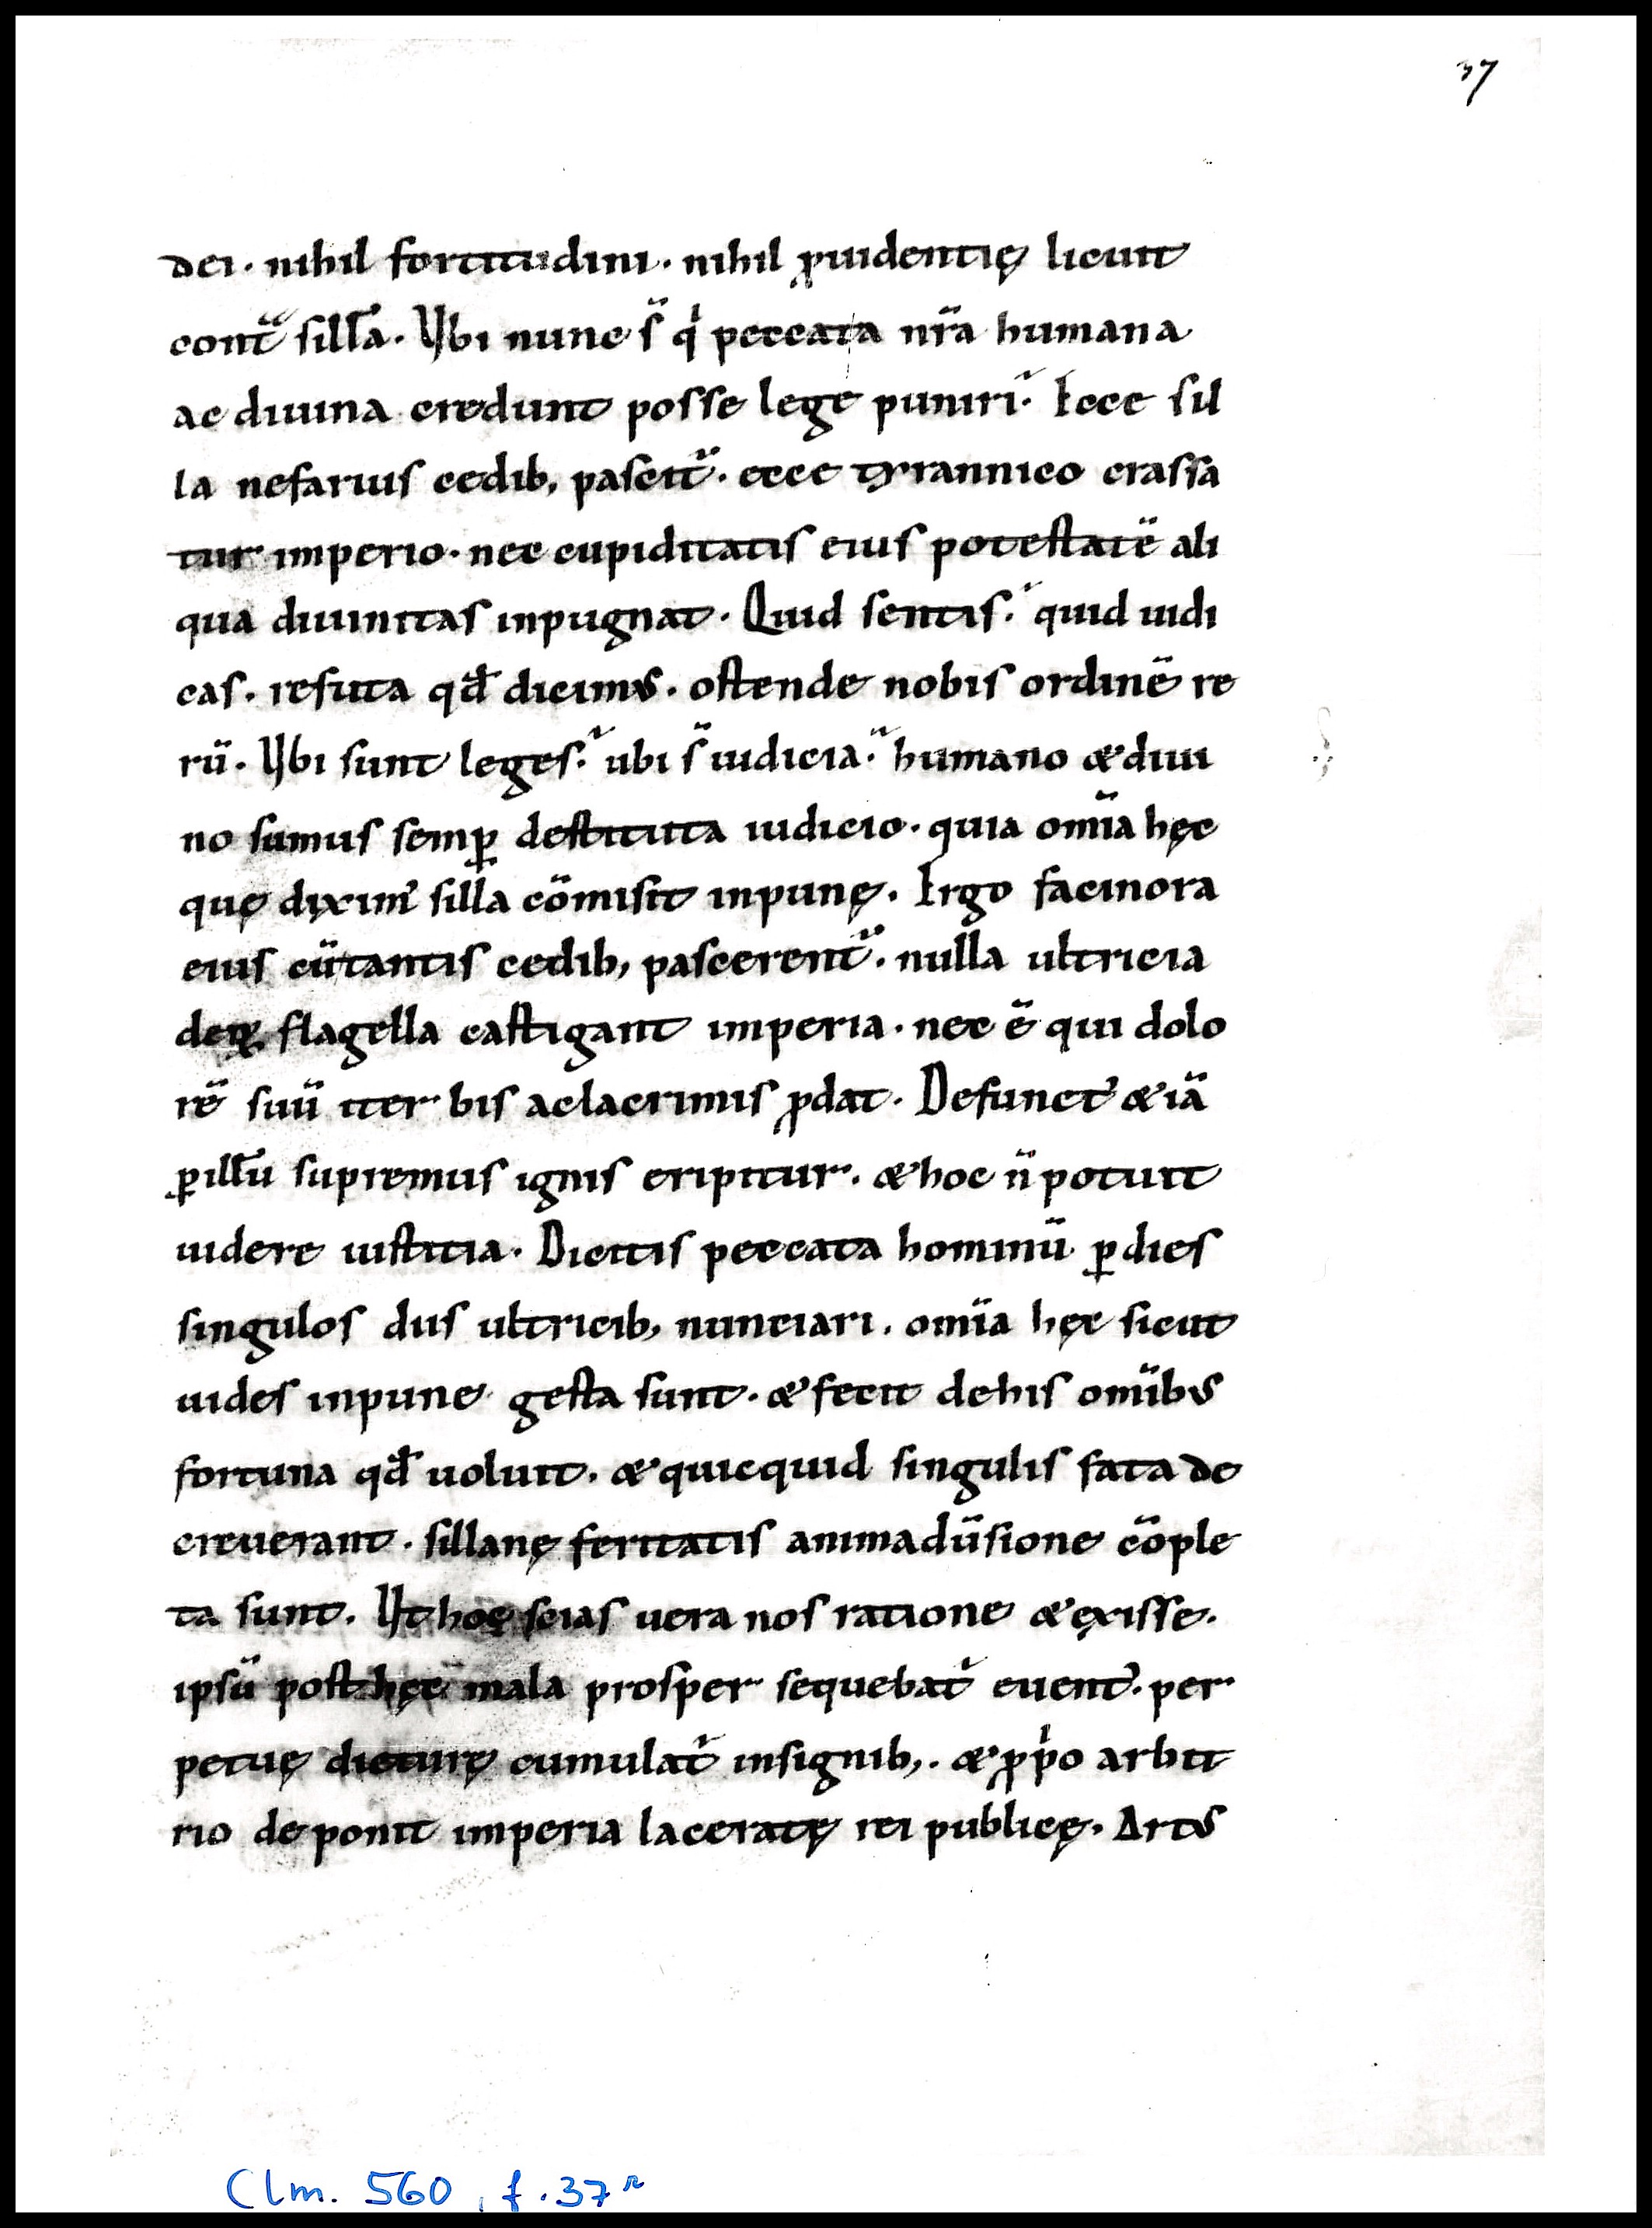 37
dei · nihil fortitudini · nihil ꝓuidentię licuit
cont̃ sill̃a · Vbi nunc s̃ qⁱ peccata nr̃a humana
ac diuina credunt posse lege puniri · Ecce sil
la nefariis cedib; pascit̃ · ecce tyrannico crassa
tur imperio · nec cupiditatis eius potestatẽ ali
qua diuinitas inpugnat · Quid sentis · quid iudi
cas · refuta qđ dicimus · ostende nobis ordinẽ re
rũ · Vbi sunt leges · ubi s̃ iudicia · humano & diui
no sumus semꝑ destituta iudicio · quia om̃ia hęc
quę dixim᾽ silla cõmisit inpunę · Ergo facinora
eius cũ tantis cedib; pascerent̃ · nulla ultricia
deorꝝ flagella castigant imperia · nec ẽ qui dolo
rẽ suũ uerbis ac lacrimis ꝓdat · Defunct᾽ & iã
ꝑ illũ supremus ignis eripitur · & hoc ñ potuit
uidere iustitia · Dicitis peccata hominũ ꝑ dies
singulos diis ultricib; nunciari · om̃ia hęc sicut
uides inpune gesta sunt · & fecit de his om̃ibus
fortuna qđ uoluit · & quicquid singulis fata de
creuerant · sillanę feritatis animadũsione cõple
ta sunt · Vt hoc scias uera nos ratione & exisse ·
ipsũ post hęc mala prosper sequebat̃ euent᾽ · per
petuę dicturę cumulat̃ insignib; · & ꝓpⁱo arbit
rio deponit imperia laceratę rei publicę · Artus
Clm. 560, f. 37ʳ